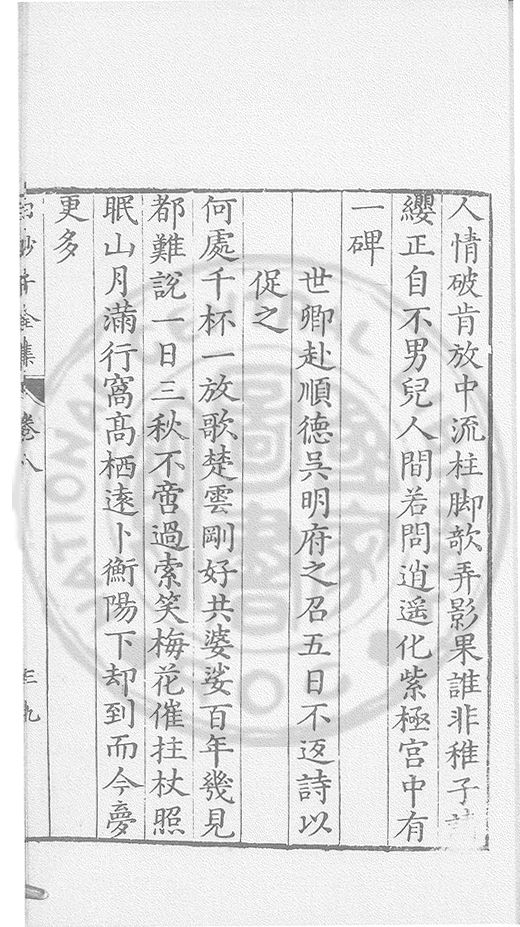 人情破肯放中流柱脚欹弄影果誰非稚子
纓正自不男兒人間若問逍遥化紫極宫中有
一碑
世卿赴順徳吳明府之召五日不返詩以
促之
何處千杯一放歌楚雲剛好共婆娑百年幾見
都難說一日三秋不啻過索笑梅花催拄杖照
眠山月滿行窩髙栖逺卜衡陽下却到而今夢
更多
白沙子全集 卷八 三九